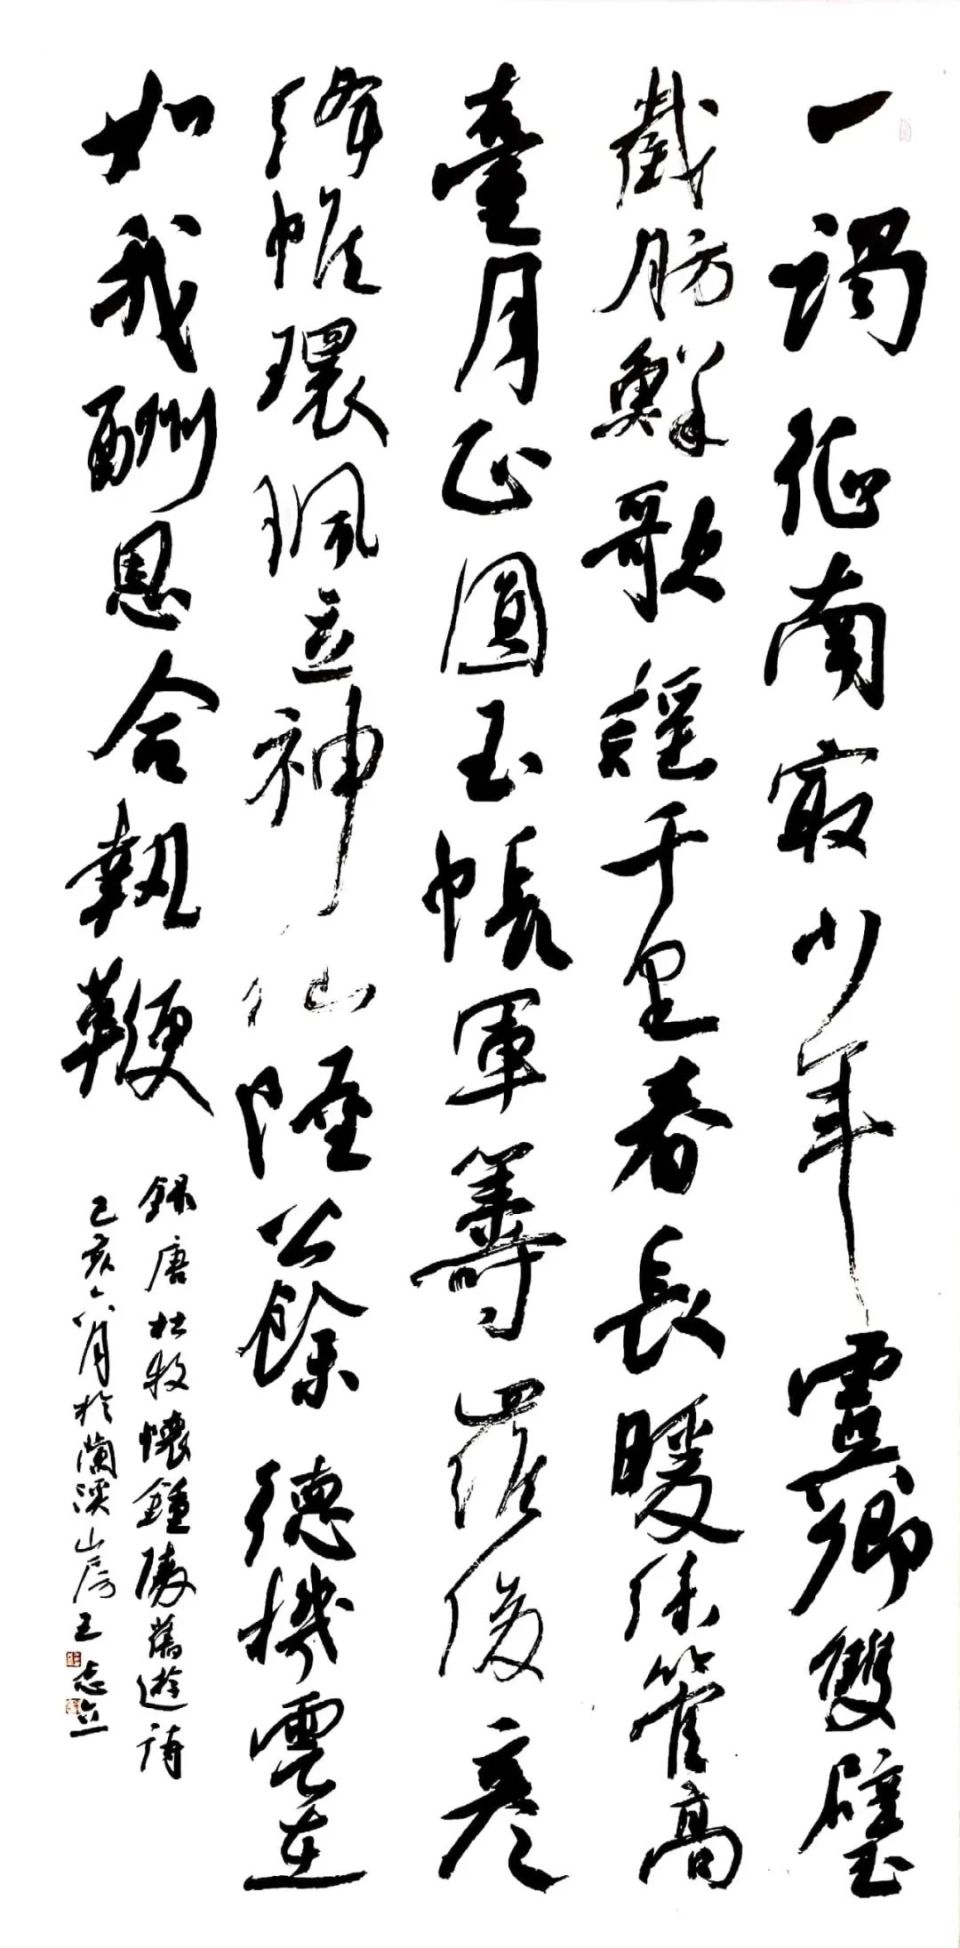 一謁征南最少年虞卿雙璧
截肪鮮歌謠千里春長暖絲管高
臺月正圓玉帳軍籌羅俊彥
絳帷環珮立神仙陸公餘德機雲在
如我酬恩合執鞭
錄唐杜牧懷鍾陵舊遊詩
己亥六月於蘭溪山房王志立